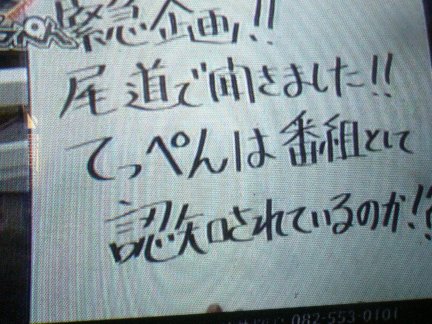 緊急企画!!
尾道で聞きました!!
てっぺんは番組として
認知されているのか!?
082-553-0101